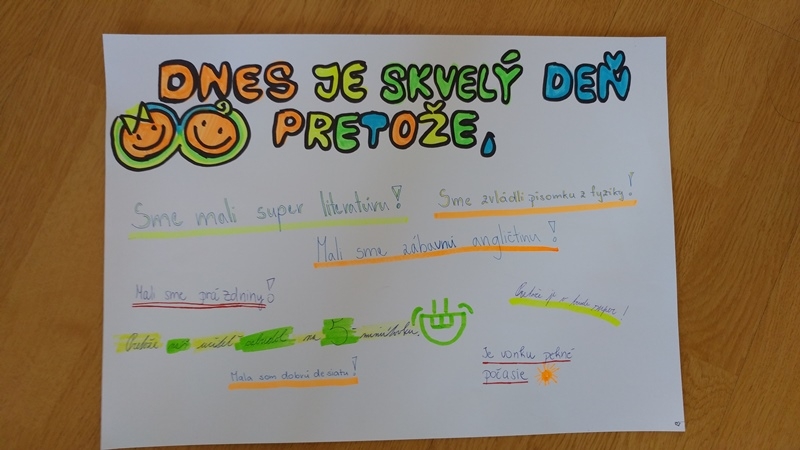 DNES JE SKVELÝ DEŇ
PRETOŽE,
Sme mali super literatúru!
Sme zvládli písomku z fyziky!
Mali sme zábavnú angličtinu!
Mali sme prázdniny!
Pretože je
Pretože nás učiteľ na 5 minútovku.
Je vonku pekné
počasie
Mala som dobrú desiatu!